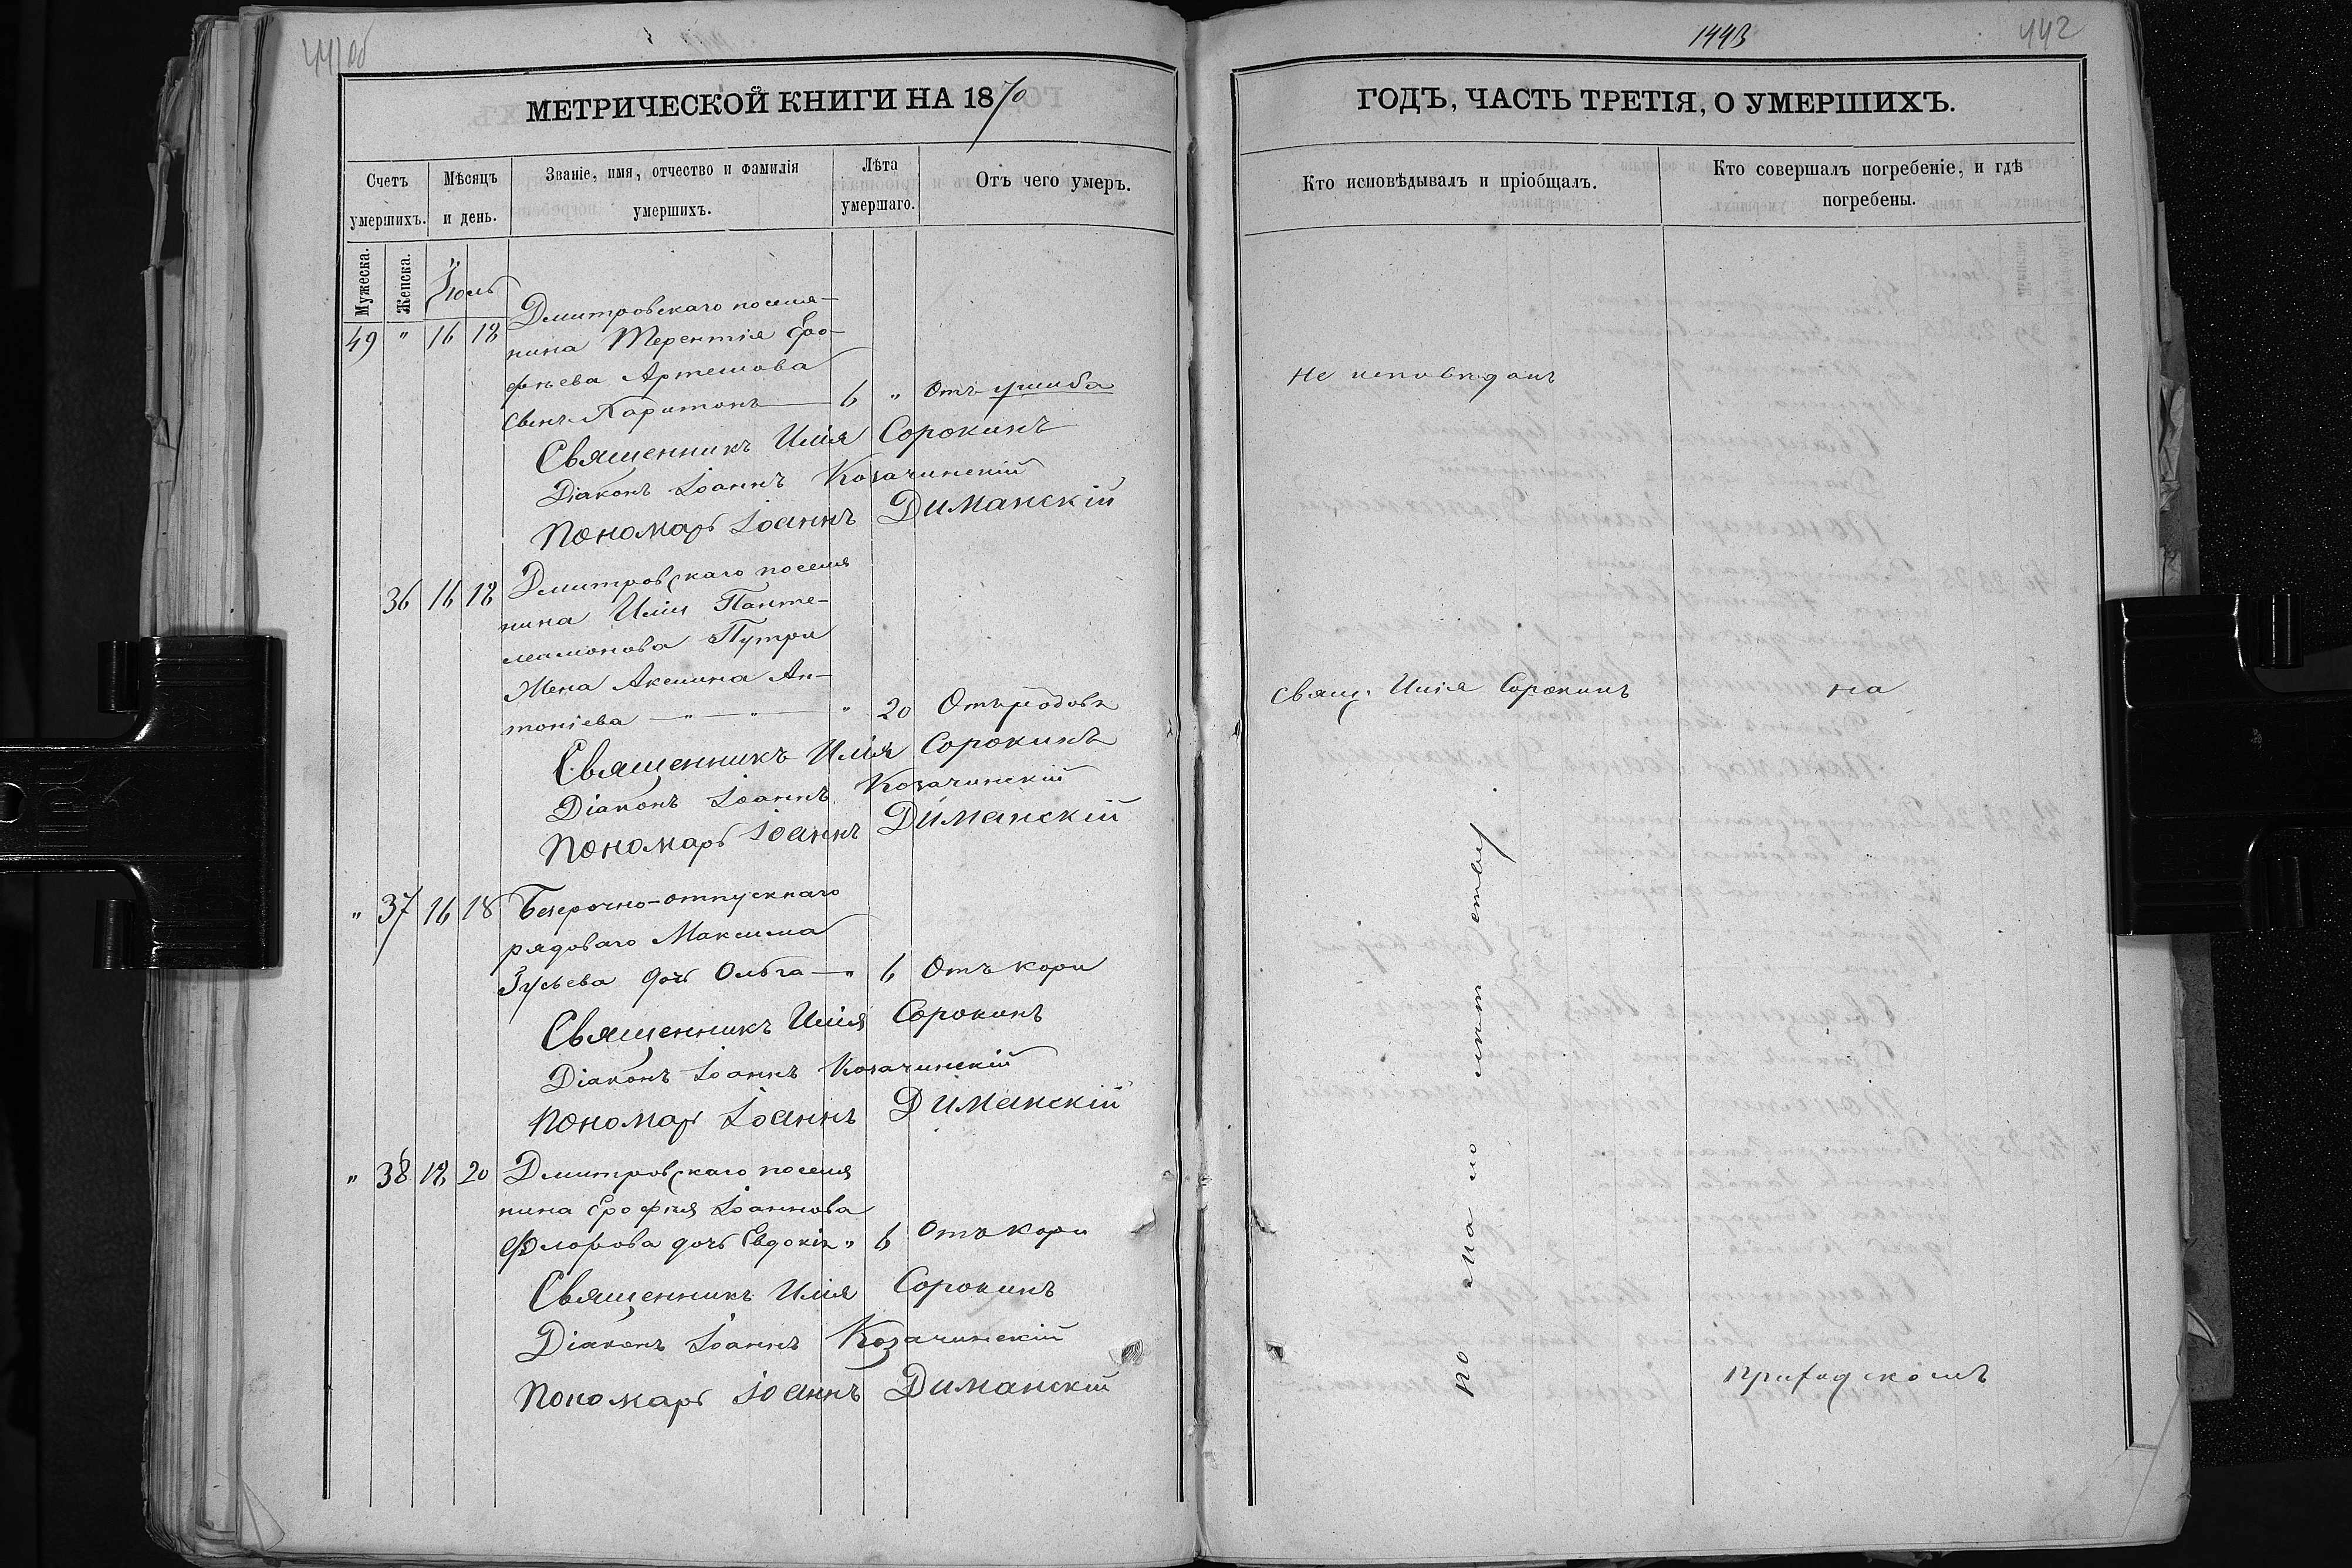 441 об
МЕТРИЧЕСКОЙ КНИГИ НА 1870
Счетъ умершихъ.
Мѣсяцъ и день.
Званіе, имя, отчество и фамилія умершихъ.
Лѣта умершаго.
Отъ чего умеръ.
Мужеска.
Женска.
Іюль
49 " 16 18 Дмитровскаго поселя-
нина Терентія Еро-
фѣева Артемова
сынъ Харитонъ 6 " Отъ ушиба
Священникъ Илія Сорокинъ
Діаконъ Іоаннъ Козачинскій
Пономарь Іоаннъ Диманскій
36 16 18 Дмитровскаго поселя
нина Иліи Панте-
леимонова Путри
жена Аксинія Ан-
тоніева " " " 20 Отъ родовъ
Священникъ Илія Сорокинъ
Діаконъ Іоаннъ Козачинскій
Пономарь Іоаннъ Диманскій
" 37 16 18 Безсрочно-отпускнаго
рядоваго Максима
Гусьева дочь Ольга " 6 Отъ кори
Священникъ Илія Сорокинъ
Діаконъ Іоаннъ Козачинскій
Пономарь Іоаннъ Диманскій
" 38 18 20 Дмитровскаго поселя
нина Ерофѣя Іоаннова
Флорова дочь Евдокія " 6 Отъ кори
Священникъ Илія Сорокинъ
Діаконъ Іоаннъ Козачинскій
Пономарь Іоаннъ Диманскій
1443
442
ГОДЪ, ЧАСТЬ ТРЕТІЯ, О УМЕРШИХЪ.
Кто исповѣдывалъ и пріобщалъ.
Кто совершалъ погребеніе, и гдѣ погребены.
Не исповѣданъ
Свящ. Илія Сорокинъ
на
по ма ло лѣт ству
приходскомъ